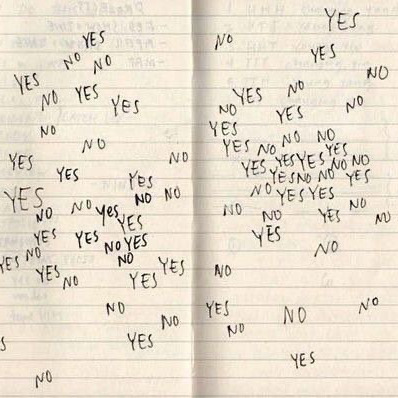 YES
NO
NO
YES
NO
YES
YES
NO
NO
NO
YES
YES
YES
YES
NO
NO
NO
NO
YES
YES
YES
YES
NO
YES
NO
NO
YES
YES
YES
NO
YES
NO
NO
YES
NO
YES
NO
YES
NO
YES
NO
NO
NO
YES
YES
NO
NO
NO
YES
NO
YES
YES
YES
YES
NO
NO
YES
NO
NO
YES
NO
YES
YES
NO
NO
NO
YES
NO
YES
NO
NO
YES
NO
NO
NO
YES